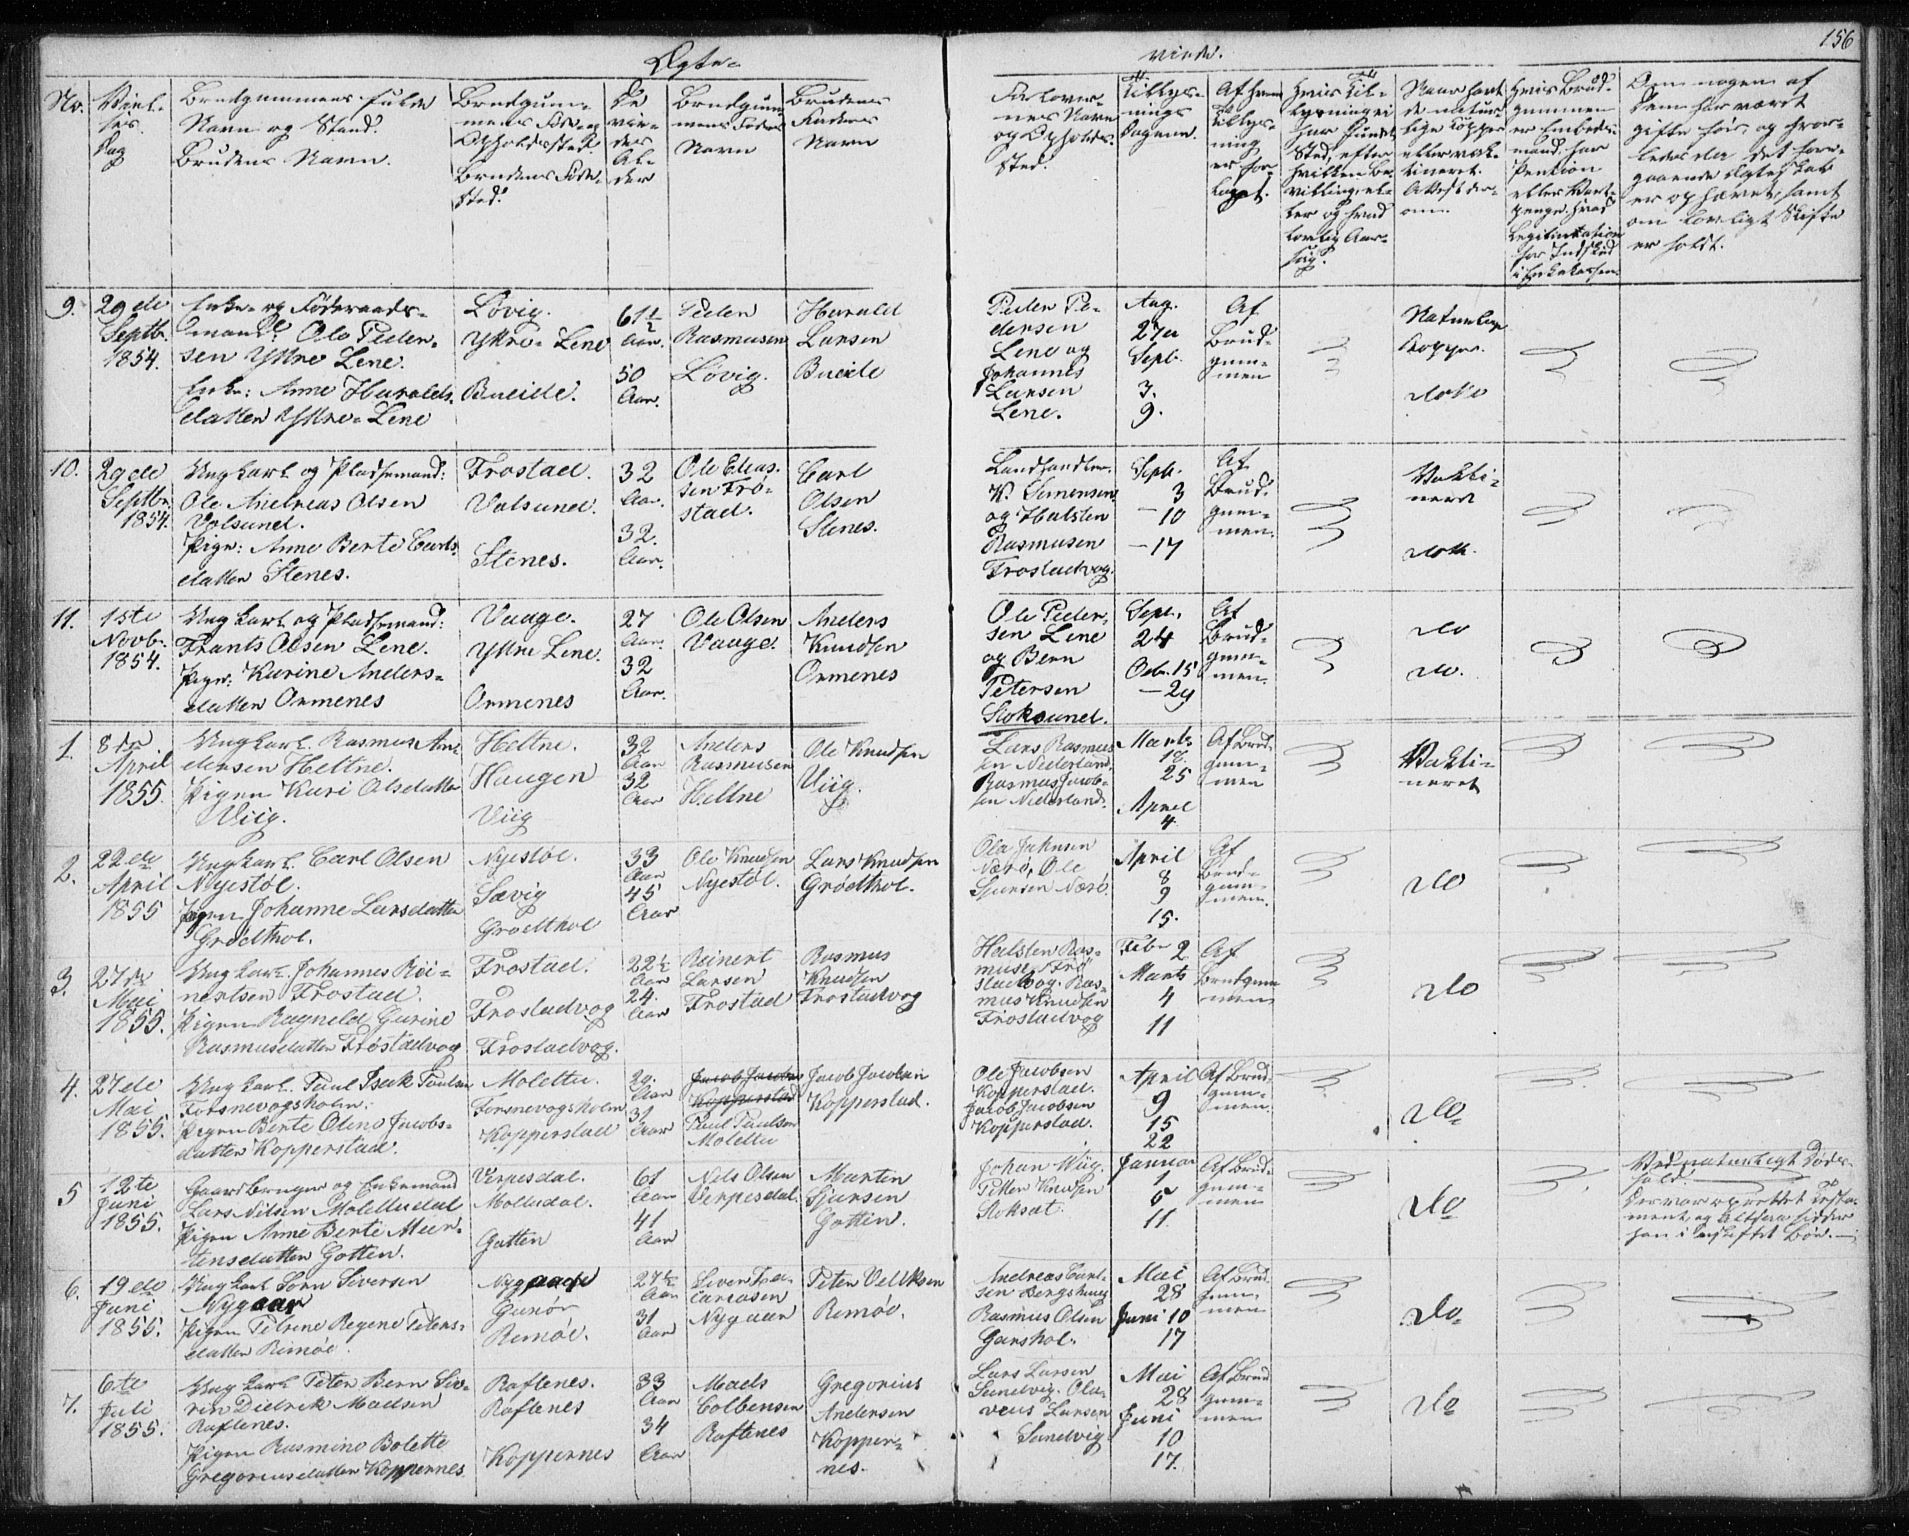 156
Ægte-
viede.
No.
Viel-
ses
Dag
Brudgummens fulde
Navn og Stand.
Brudens Navn.
Brudgum-
mens Føde- og
Opholdssted.
Brudens Føde-
sted.
De
vie-
des
Al-
der
Brudgum-
mens Faders
Navn
Brudens
Faders
Navn
Forlover-
nes Navn
og Opholds-
sted.
Tillys-
nings
Dagene.
Af hvem
Tillys-
ning
er for-
langt.
Naar havt
de natur-
lige Kopper
eller vak-
cineret.
Attest der-
om.
Om nogen af
dem har været
gifte før, og hvor-
ledes da det fore-
gaaende Ægteskab
er ophævet, samt
om lovligt Skifte
er holdt.
9.
29de
Septb.
1854.
Enke- og Føderaads-
mand: Ole Peder-
sen Yttre Lene.
Enke: Anne Haralds-
datter Yttre-Lene
Løvig.
Yttre-Lene
Bueide.
61½
Aar.
50
Aar.
Peder
Rasmusen
Løvig.
Harald
Larsen
Bueide
Peder Pe-
dersen
Lene og
Johannes
Larsen
Lene.
Aug.
27
Sepb.
3.
9.
Af
Brud-
gum-
men
Naturlige
Kopper.
dito
10.
29de
Septbr.
1854.
Ungkarl og Pladsemand:
Ole Andreas Olsen
Valsund.
Pige: Anne Berte Carls-
datter Stenes.
Frostad.
Valsund.
Stenes.
32
Aar.
32.
Aar.
Ole Elias-
sen Frø-
stad.
Carl
Olsen
Stenes.
Landhandler
K. Simensen
og Halsten
Rasmusen
Frostadvog.
Sept.
3
— 10
— 17
Af
Brud-
gum-
men.
Vakti-
neret
dito.
11.
15te
Novb.
1854.
Ungkarl og Pladsemand:
Frants Olsen Lene.
Pige: Karine Anders-
datter Ormenes
Vaage.
Yttre Lene.
Ormenes
27
Aar.
32
Aar.
Ole Olsen
Vaage.
Anders
Knudsen
Ormenes
Ole Peder-
sen Lene
og Bern
Petersen
Stoksund.
Sept.
24
Octr. 15
— 29
Af
Brud-
gum-
men.
do
do.
1.
8de
April
1855.
Ungkarl. Rasmus An-
dersen Heltne.
Pigen Kari Olsdatter
Viig.
Heltne.
Haugen
Viig
32
Aar
32
Aar
Anders
Rasmusen
Heltne
Ole Knudsen
Viig.
Lars Rasmus-
sen Nederland,
Rasmus Jacob-
sen Nederland.
Marts
18
25
April
4
Af Brud-
gum-
men
Vakti-
neret
2.
22de
April
1855
Ungkarl. Carl Olsen
Nyestøl.
Pigen Johanne Larsdatter
Grodthol.
Nyestøl.
Sævig
Grodthol
33
Aar
45
Aar
Ole Knudsen
Nyestøl.
Lars Knudsen
Grødthol.
Ole Johnsen
Nærø, Ole
Sjursen Nærø.
April
8
9
15.
Af
Brud-
gum-
men.
do
3.
27de
Mai
1855.
Ungkarl. Johannes Rei-
nertsen Frostad.
Pigen Ragnild Gurine
Rasmusdatter Frostadvog
Frostad.
Frostadvog
Frostadvog.
22½
Aar
24.
Aar
Reinert
Larsen
Frostad
Rasmus
Knudsen
Frostadvog
Halsten Ras-
musen Frø-
stadvog. Ras-
mus Knudsen
Frostadvog
Febr 2
Marts
4
11
Af
Brudgum-
men
do
4.
27de
Mai
1855.
Ungkarl. Paul Isak Paulsen
Forsnevogsholm.
Pigen Berte Oline Jacobs-
datter Kopperstad.
Moletta.
Forsnevogsholm
Kopperstad
29.
Aar
31
Aar
Jacob Jacobsen
Kopperstad
Paul Paulsen
Moletta
Jacob Jacobsen
Kopperstad.
Ole Jacobsen
Kopperstad.
Jacob Jacobsen
Kopperstad.
April
9
15
22
Af Brud-
gum-
men.
do
5
12te
Juni
1855.
Gaardbruger og Enkemand
Lars Nilsen Molludal
Pigen Anne Berte Mar-
tensdatter Gotten.
Verpesdal.
Moludal.
Gotten
61
Aar
41
Aar
Nils Olsen
Verpesdal
Martin
Sjursen
Gotten.
Johan Wiig.
Petter Knudsen
Stoksæt.
Januar
1
6
11.
Af Brud-
gum-
men
do
Ved naturligt Døds-
fald.
Der var oprettet Testa-
ment og altsaa sidder
han i uskiftet Bo.
6.
19de
Juni
1855.
Ungkarl Sørn Seversen
Nygaar
Pigen Petrine Regine Peters-
datter Rimøe.
Nygaard
Gurør
Remøe.
27½
Aar
31
Aar
Nygaar
Remøe.
Andreas Carl-
sen Bergshaug
Rasmus Olsen
Garshol.
Mai
28
Juni 10
17
Af Brud-
gum-
men
do
7.
6te
Juli
1855.
Ungkarl Peter Bern Siv-
rin Didrik Madsen
Raftenes.
Pigen Rasmine Bolette
Gregoriusdatter Koppernes
Raftenes.
Raftenes
Koppernes
33
Aar
34
Aar
Mads
Colbensen
Raftenes
Gregorius
Andersen
Kopper-
nes.
Lars Larsen
Sandvig. Ola-
veus Larsen
Sandvig
Mai
28
Juni
10
17.
Af Brud-
gum-
men
do